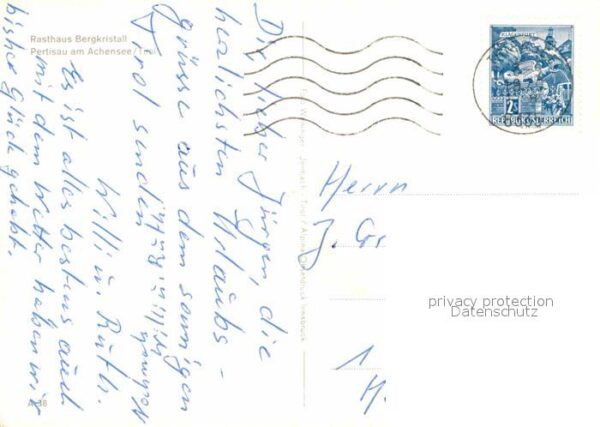 Rasthaus Bergkristall
Pertisau am Achensee/Tirol
Dir, lieber Jürgen, die
herzlichsten Urlaubs-
grüsse aus dem sonnigen
Tirol senden
Willi u. Ruth.
Es ist alles bestens auch
mit dem Wetter haben wir
bisher Glück gehabt.
REPUBLIK ÖSTERREICH
Herrn
J. Gr
privacy protection
Datenschutz